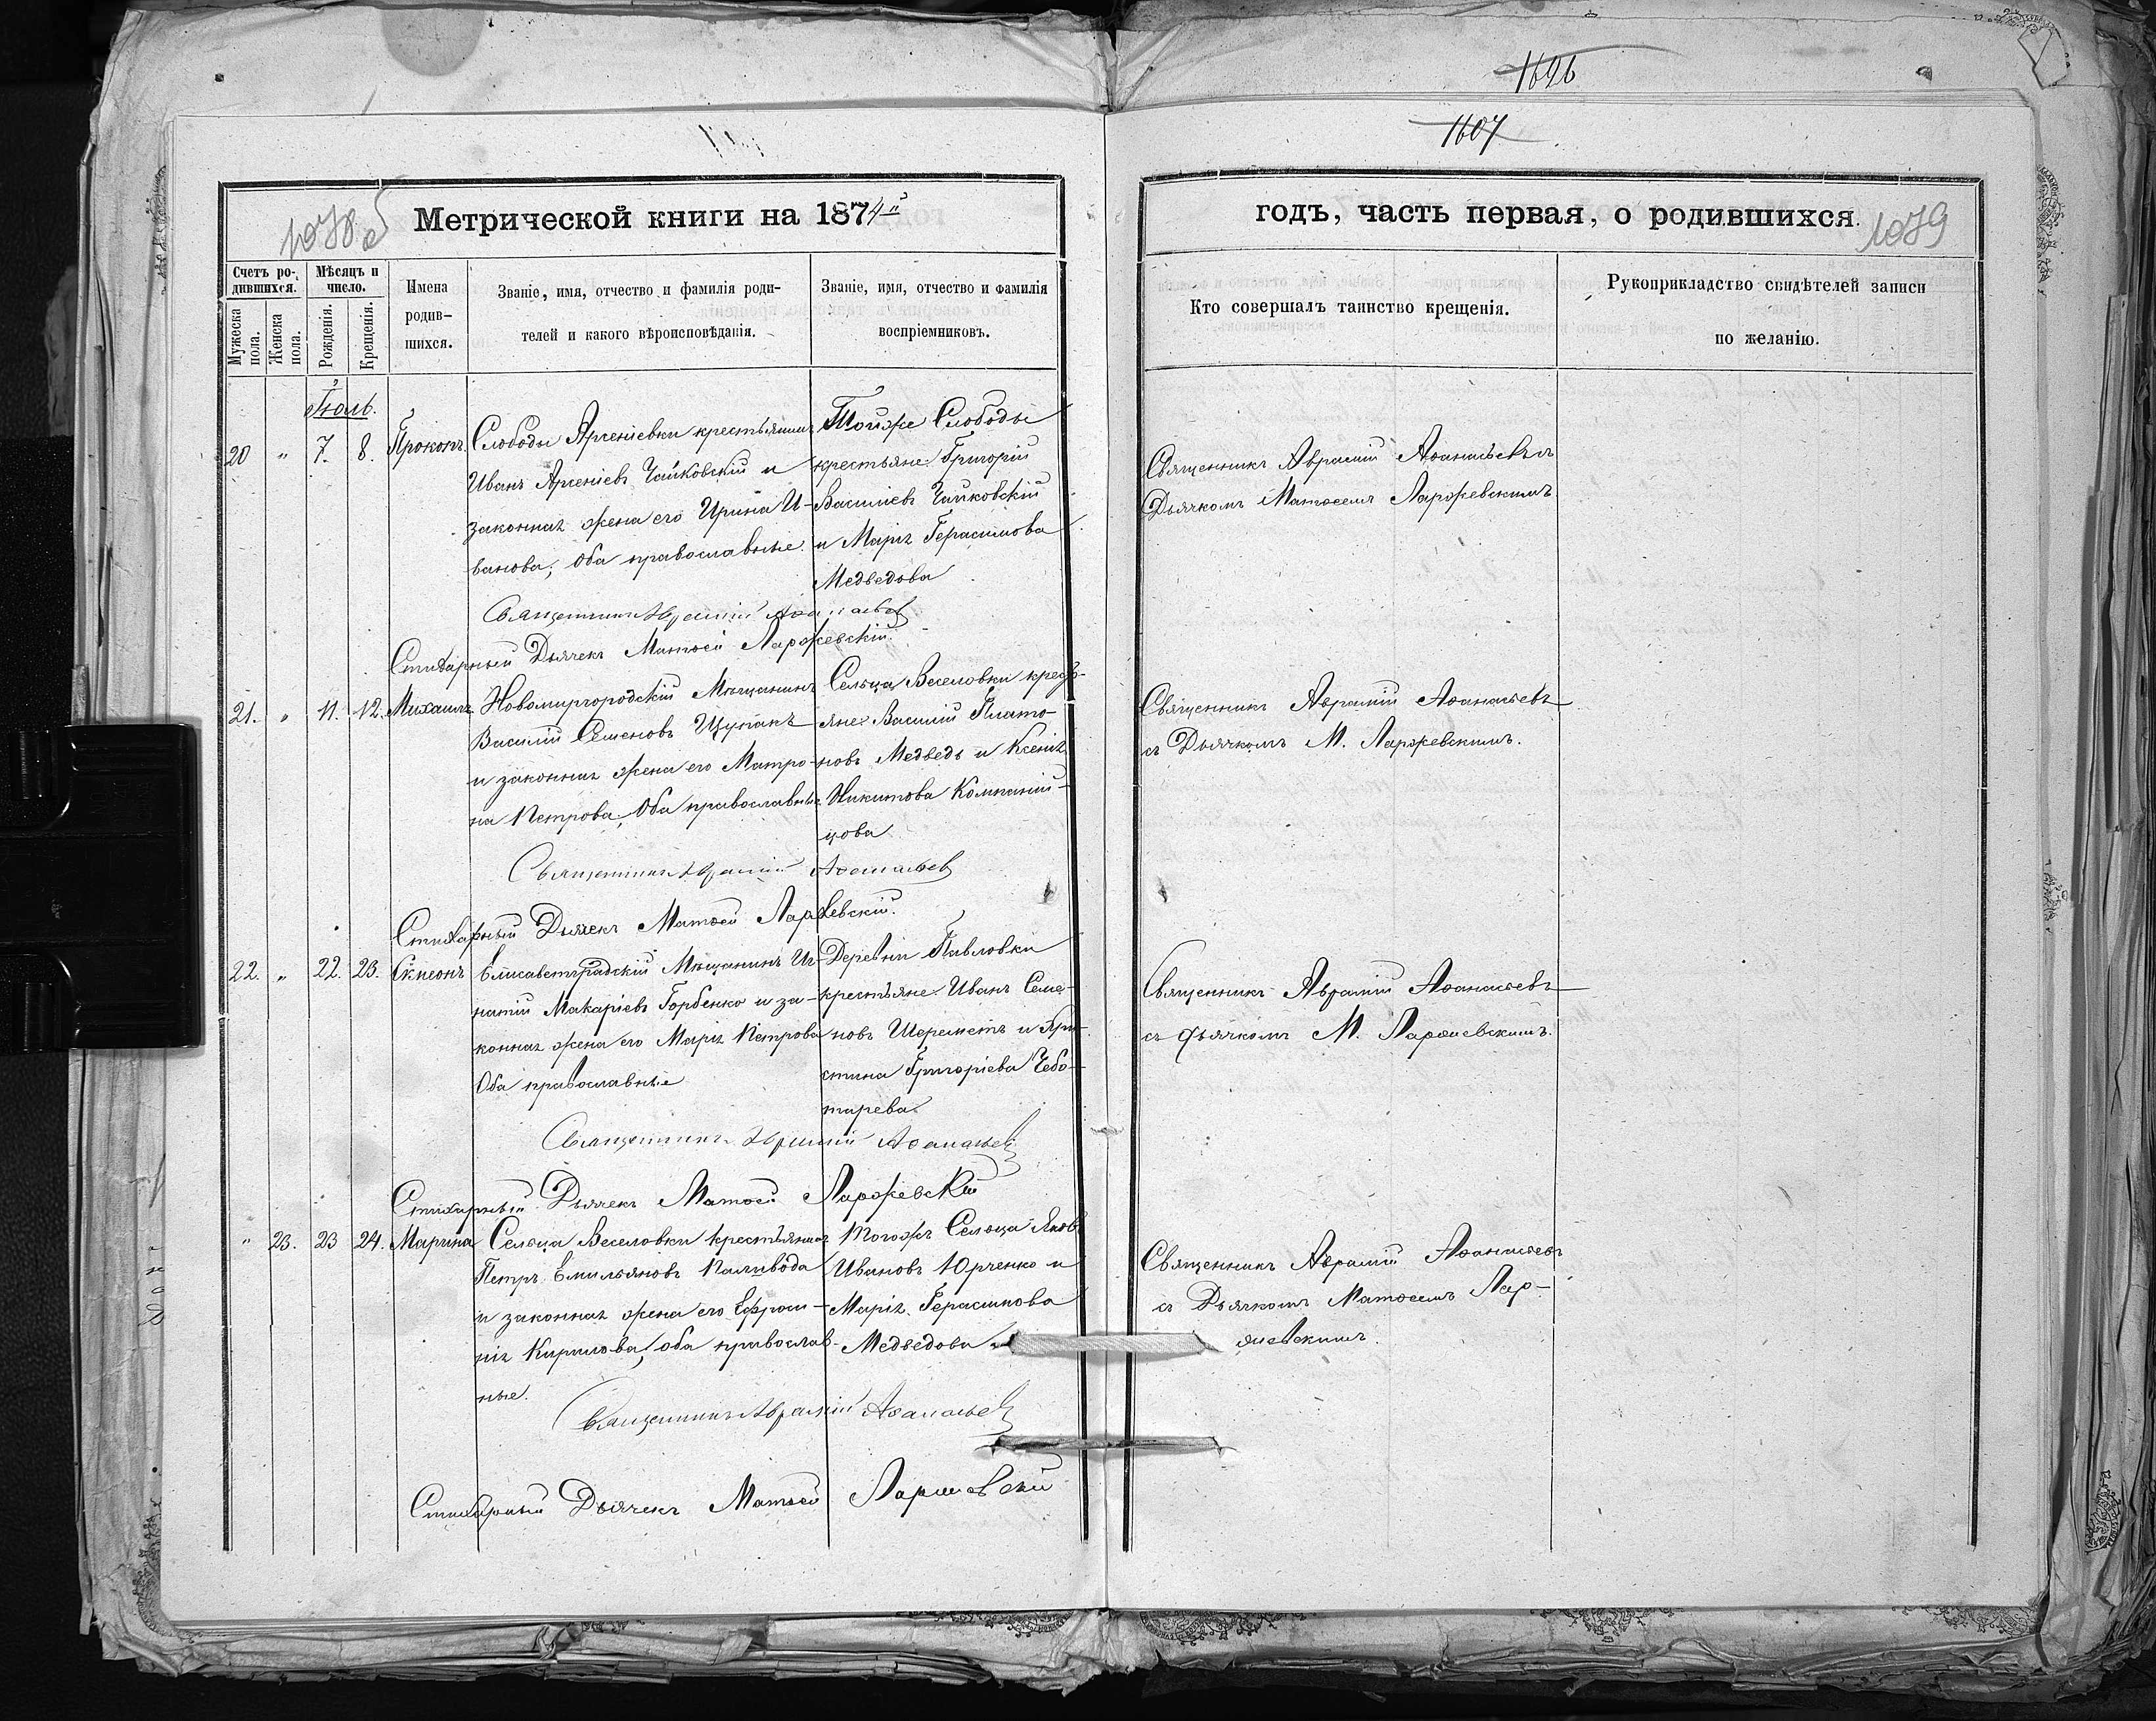 1626
1607
1078 об
Метрической книги на 1874й
годъ, часть первая, о родившихся.
1079
Счетъ родившихся.
Мужеска пола.
Женска пола.
Мѣсяцъ и число.
Рожденія.
Крещенія.
Имена родившихся.
Званіе, имя, отчество и фамилія роди-
телей и какого вѣроисповѣданія.
Званіе, имя, отчество и фамилія
воспріемниковъ.
Кто совершалъ таинство крещенія.
Рукоприкладство свидѣтелей записи
по желанію.
Іюль.
20 " 7. 8. Прокопъ
Слободы Арсеніевки крестьянинъ
Иванъ Арсеніевъ Чайковскій и
законная жена его Ирина И-
ванова, оба православные.
Тойже Слободы
крестьяне: Григорій
Василіевъ Чайковскій
и Марія Герасимова
Медведова
Священникъ Аврамій Аѳанасьевъ
Дьячкомъ Матѳеемъ Ларжевскимъ
Священникъ Аврамій Аѳанасьев
Стихарный Дьячекъ Матѳей Ларжевскій.
21. " 11. 12. Михаилъ
Новомиргородскій Мѣщанинъ
Василій Семеновъ Щупакъ
и законная жена его Матро-
на Петрова, Оба православные.
Сельца Веселовки кресть-
яне: Василій Плато-
новъ Медведь и Ксенія
Никитова Компаній-
цова
Священникъ Аврамій Аѳанасьевъ
съ Дьячкомъ М. Ларжевскимъ.
Священникъ Аврамій Аѳанасьев
Стихарный Дьячекъ Матѳей Ларжевскій.
22. " 22. 23.
Елисаветградскій Мѣщанинъ Иг-
натій Макаріевъ Горбенко и за-
конная жена его Марія Петрова
Оба православные
Деревни Павловки
крестьяне: Иванъ Семе-
новъ Шереметъ и
стина Григоріева Чебо-
тарева.
Священникъ Аврамій Аѳанасьевъ
съ Дьячкомъ М. Ларжевскимъ.
Священникъ Аврамій Аѳанасьев
Стихарный Дьячекъ Матѳей Ларжевскій
" 23. 23 24. Марина
Сельца Веселовки крестьянинъ
Петръ Емильяновъ Паливода
и законная жена его Ефроси-
нія Кирилова, оба православ-
ные.
Тогожъ Сельца Яковъ
Ивановъ Юрченко и
Марія Герасимова
Медведова
Священникъ Аврамій Аѳанасьевъ
съ Дьячкомъ Матѳеемъ Лар-
жевскимъ.
Священникъ Аврамій Аѳанасьев
Стихарный Дьячекъ Матѳей Ларжевскій